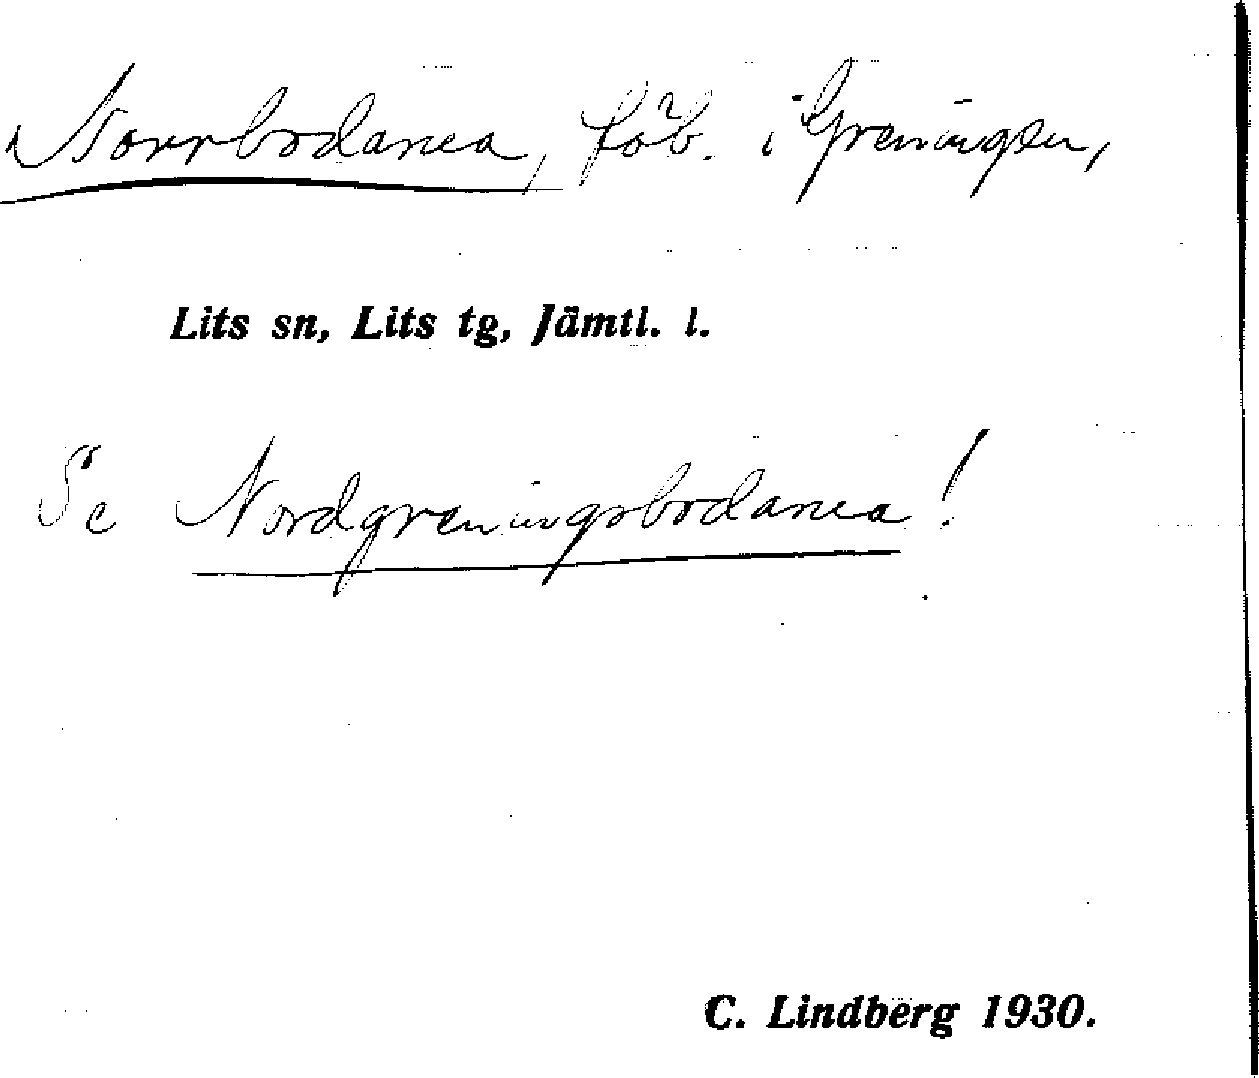 Norrbodarna, fäb. i Greningen,
Lits sn, Lits tg, Jämtl. l.
Se Nordgreningsbodarna!
C. Lindberg 1930.